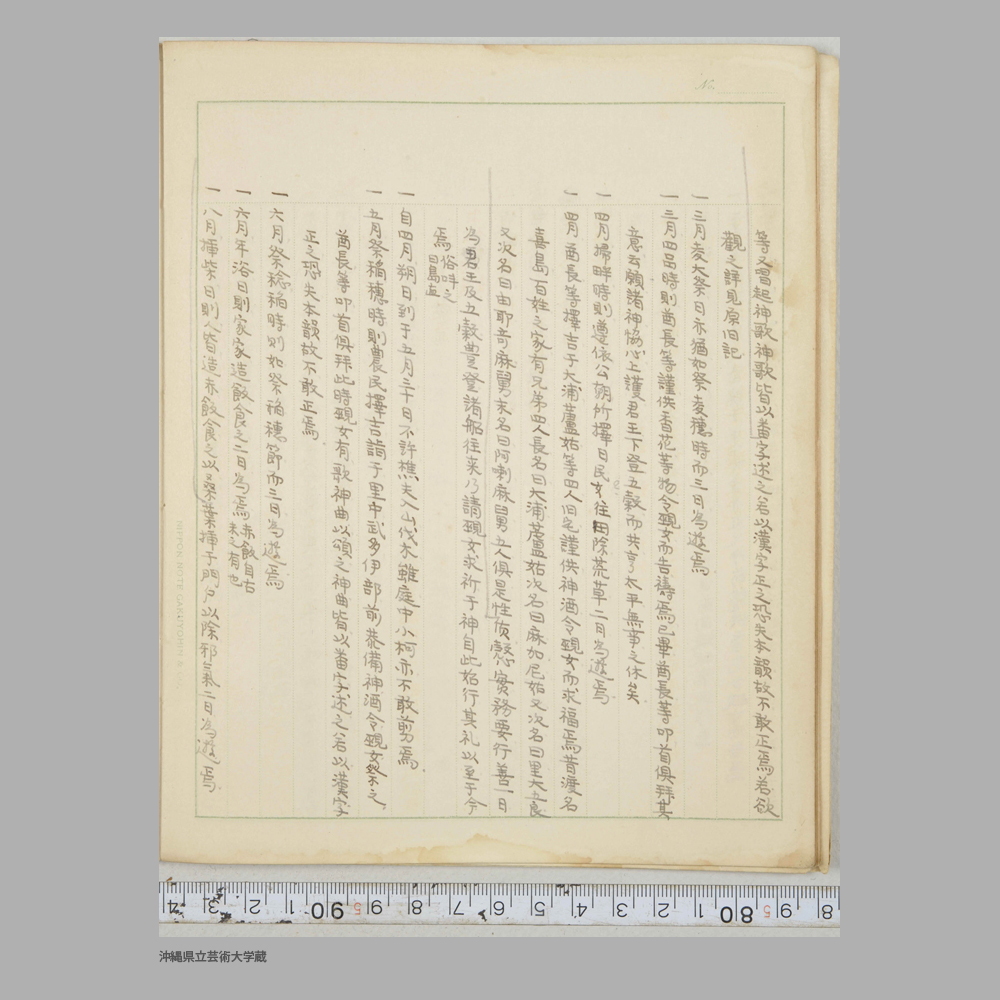 No.
等又曽起神歌神歌皆以番字述之若以漢字正之恐失本韻故不敢正焉若欲
觀之詳見原旧記
一 三月麦大祭日亦猶如祭麦穂時而三日為遊焉
一 三月四品時則酋長等謹供香花等物令覡女而告禱焉已畢酋長等叩首俱拜其
意去願諸神恊心上護君王下登五穀而共亨太平無事之休矣
一 四月掃畔時則遵依公朝所擇日民女往田除荒草二日為遊焉
一 四月酋長等擇吉于大浦蘆姑等四人旧宅謹供神酒令覡女而求福焉昔渡名
喜島百姓之家有兄弟四人長名曰大浦蘆姑次名曰麻加尼姑又次名曰里大五良
又次名曰由耶奇麻舅末名曰阿喇麻舅五人俱是性質慤実務要行善一日
為君王及五穀豊登諸船往来乃請覡女求祈于神自此始行其礼以至于今
焉 俗呼之曰島直
一 自四月朔日到于五月三十日不許樵夫入山伐木雖庭中小柯亦不敢剪焉
一 五月祭稲穂時則農民擇吉詣于里中武多伊部前恭備神酒令覡女祭之
酋長等叩首俱拜此時覡女有歌神曲以頌之神曲皆以番字述之若以漢字
正之恐失本韻故不敢正焉
一 六月祭稔稲時則如祭稲穂節而三日為遊焉
一 六月年浴日則家家造飯食之二日為焉 赤飯自古未之有也
一 八月挿柴日則人皆造赤飯食之以桑葉挿于門戸以除邪氣二日為遊焉
NIPPON NOTE GAKUYOHIN
4 3 2 1 90 9 8 7 6 5 4 3 2 1 80 9 8
沖縄県立芸術大学蔵